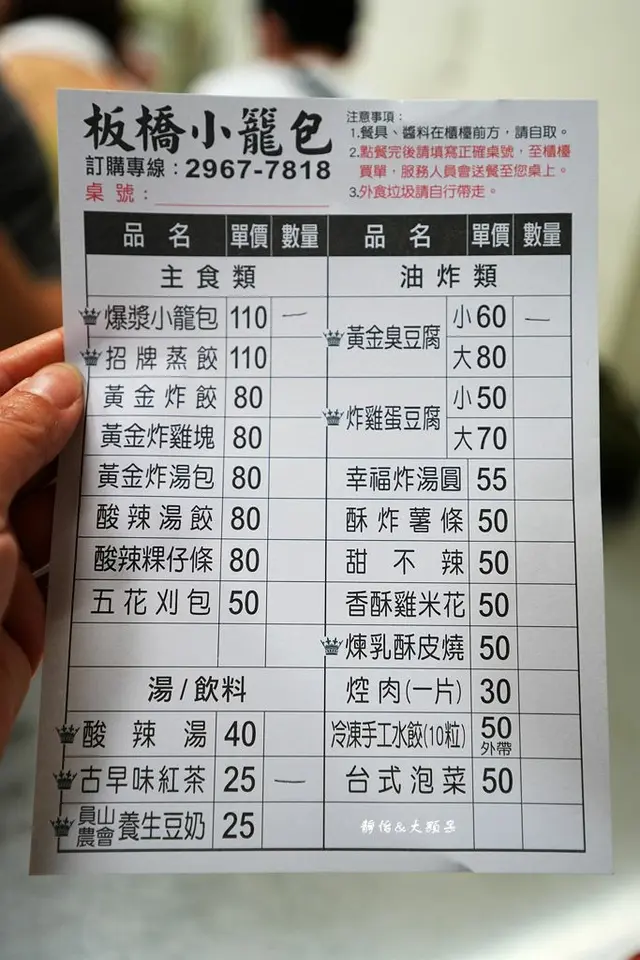 板橋小籠包
訂購專線：2967-7818
桌號：
注意事項：
1.餐具、醬料在櫃檯前方，請自取。
2.點餐完後請填寫正確桌號，至櫃檯
買單，服務人員會送餐至您桌上。
3.外食垃圾請自行帶走。
品名 單價 數量
主食類
爆漿小籠包 110 一
招牌蒸餃 110
黃金炸餃 80
黃金炸雞塊 80
黃金炸湯包 80
酸辣湯餃 80
酸辣粿仔條 80
五花刈包 50
湯/飲料
酸辣湯 40
古早味紅茶 25 一
員山農會養生豆奶 25
品名 單價 數量
油炸類
黃金臭豆腐 小60 一
大80
炸雞蛋豆腐 小50
大70
幸福炸湯圓 55
酥炸薯條 50
甜不辣 50
香酥雞米花 50
煉乳酥皮燒 50
焢肉(一片) 30
冷凍手工水餃(10粒) 50外帶
台式泡菜 50
靜怡&大顆呆